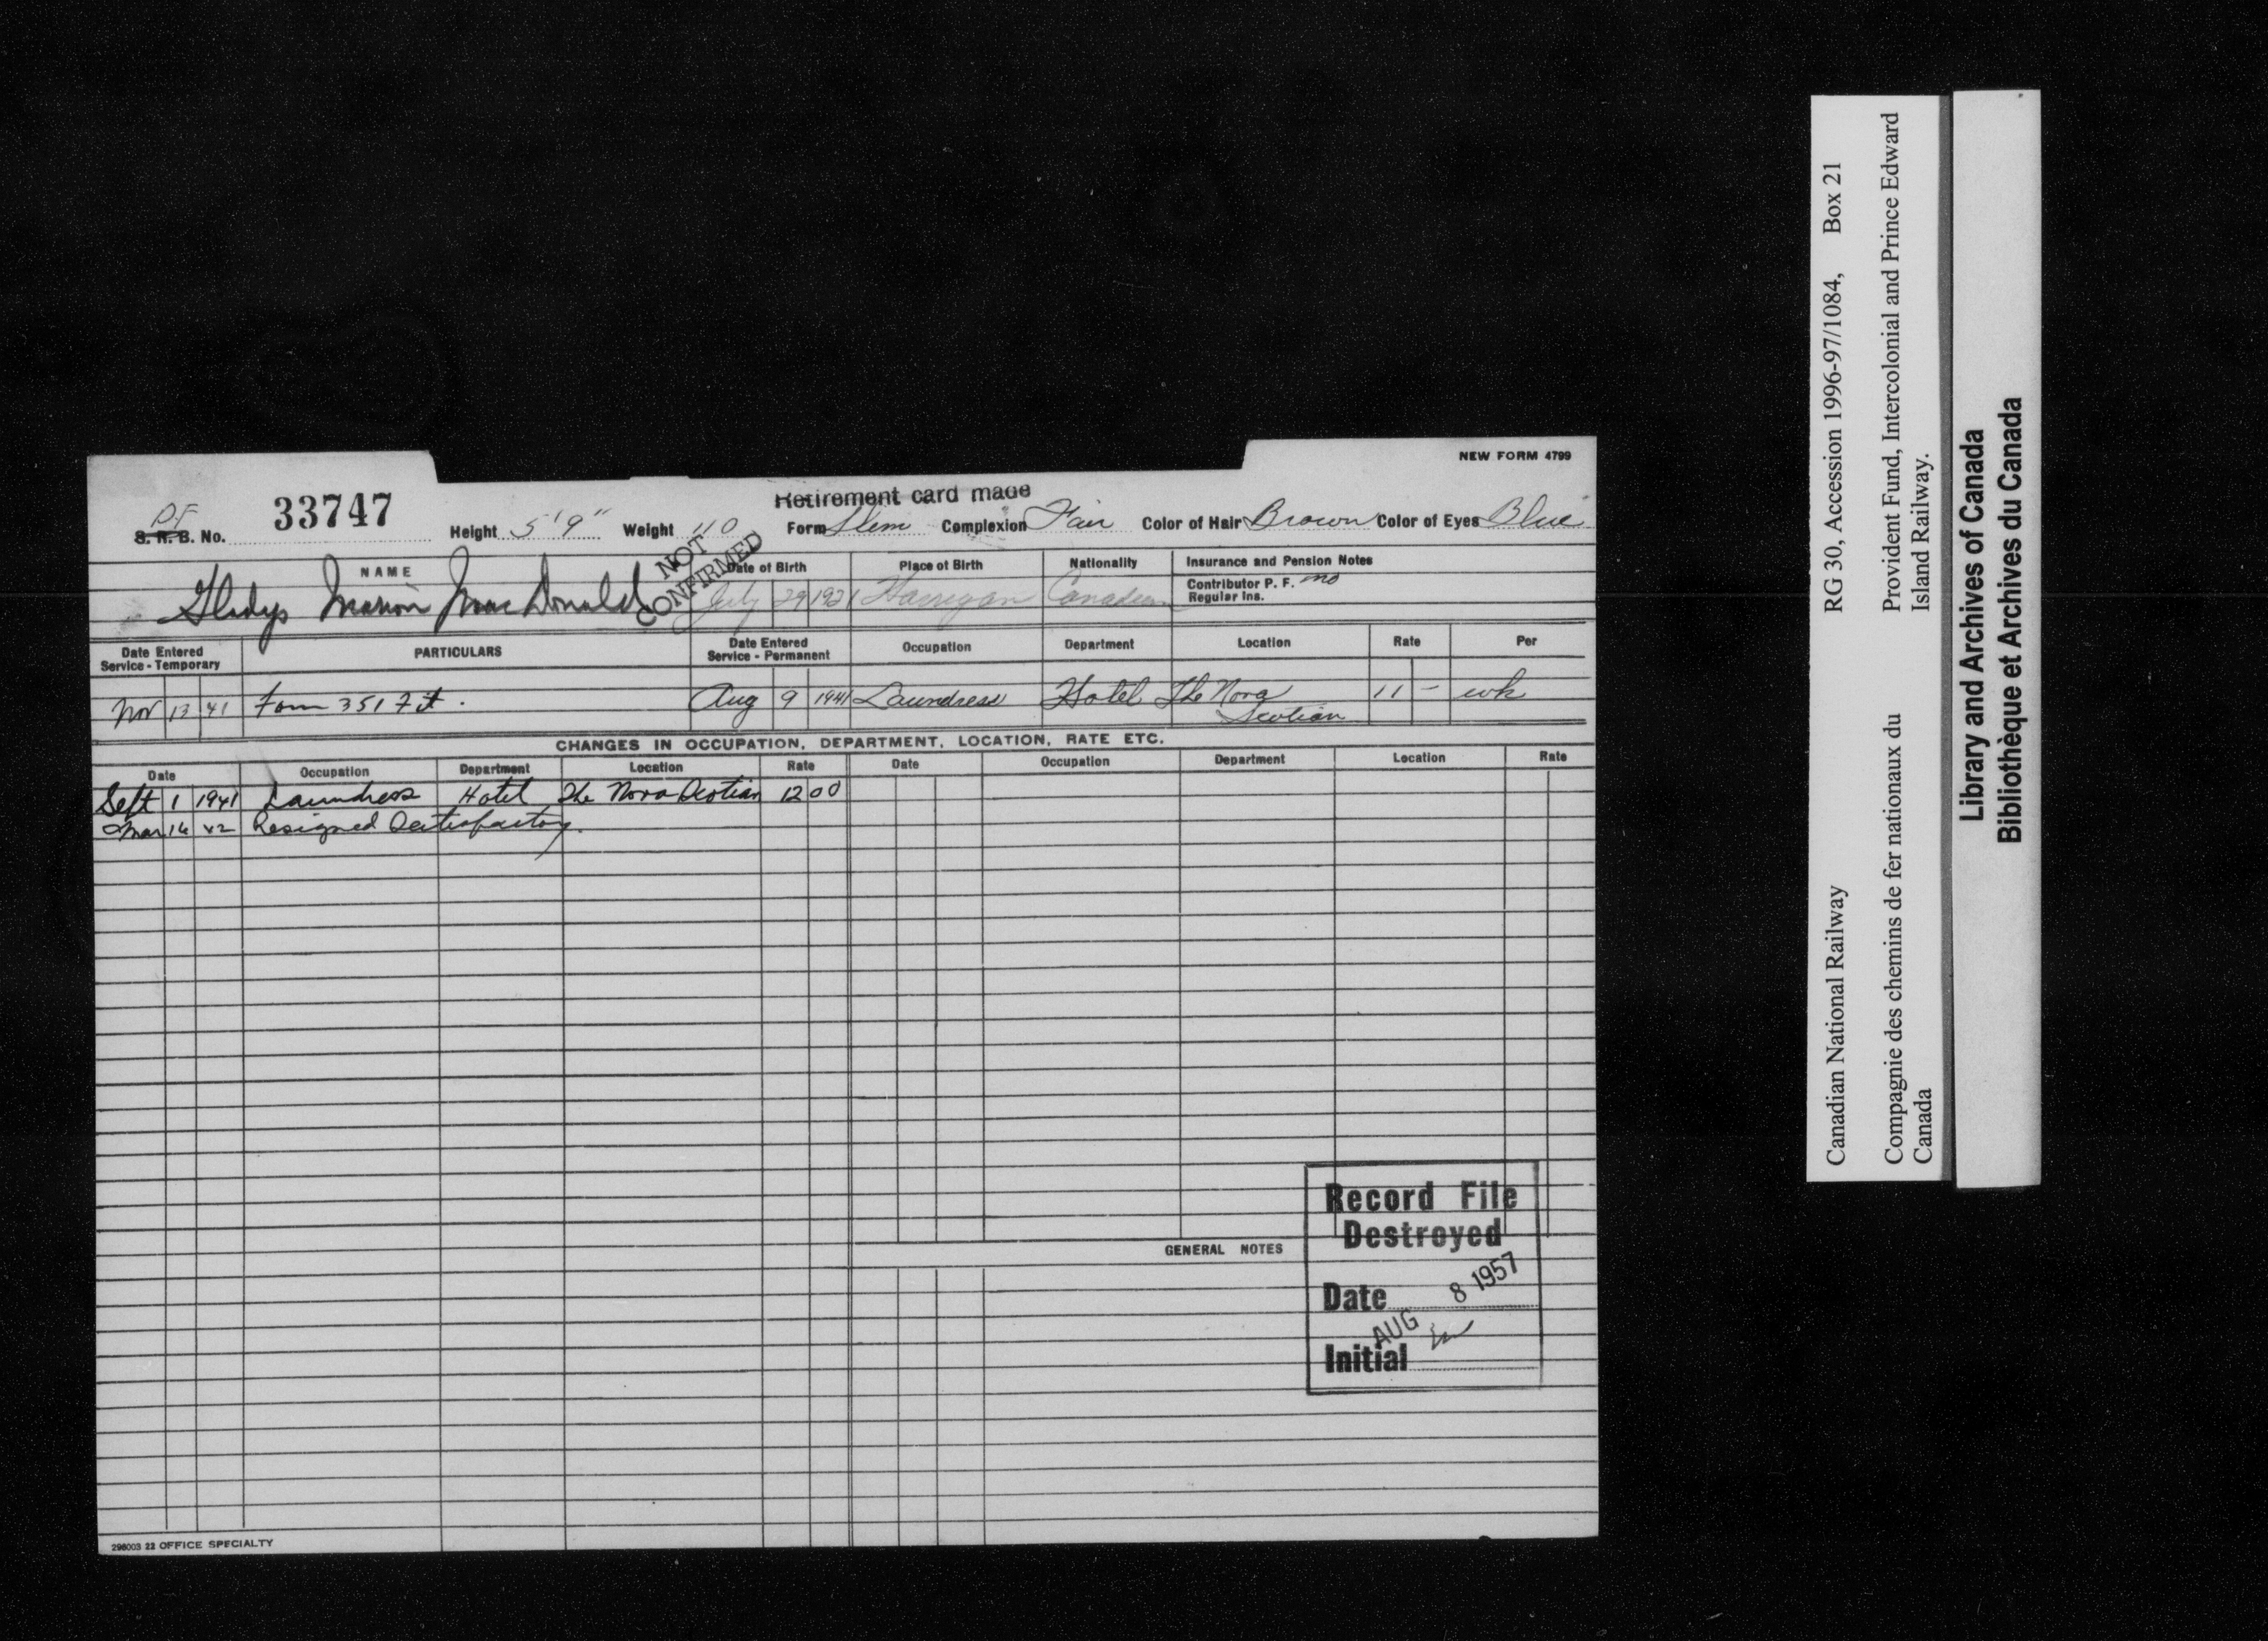 NEW FORM 4799
Retirement card made
P.F.
S. R. B. No. 33747 Height 5'9" Weight 110 Form Slim Complexion Fair Color of Hair Brown Color of Eyes Blue
NOT CONFIRMED
NAME Date of Birth Place of Birth Nationality Insurance and Pension Notes
Gladys Marion MacDonald July 29 1921 Canadian Contributor P. F. no
Regular Ins.
Date Entered Service - Temporary PARTICULARS Date Entered Service - Permanent Occupation Department Location Rate Per
Nov 13 41 Form 3517 Aug 9 1941 Laundress Hotel The Nova Scotian 11 - wk
CHANGES IN OCCUPATION, DEPARTMENT, LOCATION, RATE ETC.
Date Occupation Department Location Rate Date Occupation Department Location Rate
Sept 1 1941 Laundress Hotel The Nova Scotian 12 00
Mar 16 42 Resigned Satisfactory.
GENERAL NOTES
Record File
Destroyed
Date AUG 8 1957
Initial
298003 22 OFFICE SPECIALTY
Canadian National Railway RG 30, Accession 1996-97/1084, Box 21
Compagnie des chemins de fer nationaux du Canada
Provident Fund, Intercolonial and Prince Edward Island Railway.
Library and Archives of Canada
Bibliothèque et Archives du Canada